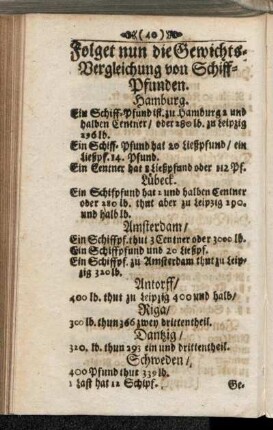 (40)
Folget nun die Gewichts-
Vergleichung von Schiff-
Pfunden.
Hamburg.
Ein Schiff-Pfund ist zu Hamburg 2 und
halben Centner / oder 280 lb. zu Leipzig
296 lb.
Ein Schiff-Pfund hat 20 Ließpfund / ein
Ließpf. 14. Pfund.
Ein Centner hat 8 Ließpfund oder 112 Pf.
Lübeck.
Ein Schifpfund hat 2 und halben Centner
oder 280 lb. thut aber zu Leipzig 290.
und halb lb.
Amsterdam /
Ein Schiffpf. thut 3 Centner oder 3000 lb.
Ein Schiffpfund und 20 Ließpf.
Ein Schiffpf. zu Amsterdam thut zu Leip-
zig 320 lb.
Antorff /
400 lb. thut zu Leipzig 400 und halb /
Riga /
300 lb. thun 266 zwey drittentheil.
Dantzig /
320. lb. thun 293 ein und drittentheil.
Schweden /
400 Pfund thut 330 lb.
1 Last hat 12 Schipf.
Ge-